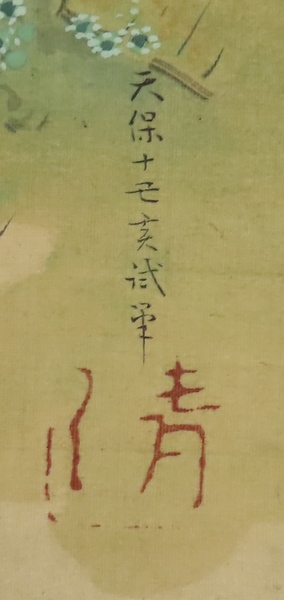 天保十己亥試筆